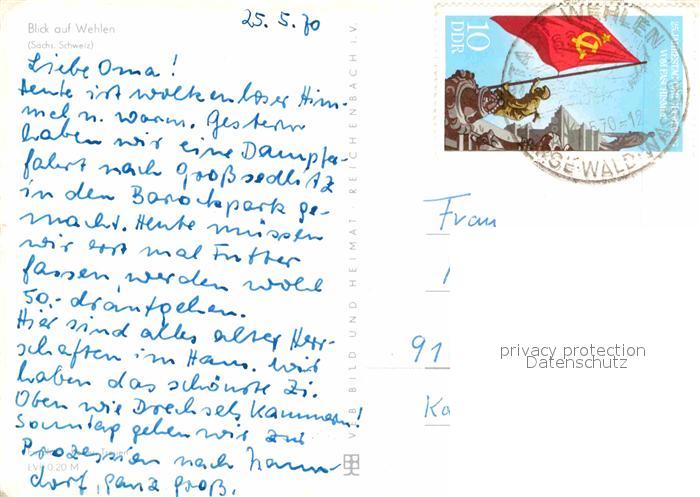 25.5.70
Blick auf Wehlen
(Sächs. Schweiz)
Liebe Oma!
Heute ist wolkenloser Him-
mel u. warm. Gestern
haben wir eine Dampfer-
fahrt nach Großsedlitz
in den Barockpark ge-
macht. Heute müssen
wir erst mal Futter
fassen, werden wohl
50.- draufgehen.
Hier sind alles alter Herr-
schaften im Haus. Wir
haben das schönste Zi.
Oben wie Drechsels Kammern!
Sonntag gehen wir zur
Prozession nach
dorf, ganz groß.
I/VI 0.20 M
VEB BILD UND HEIMAT REICHENBACH i. V.
10
DDR
25. JAHRESTAG DER BEFREIUNG
VOM FASCHISMUS
WEHLEN
70-12
Frau
91
Ka
privacy protection
Datenschutz